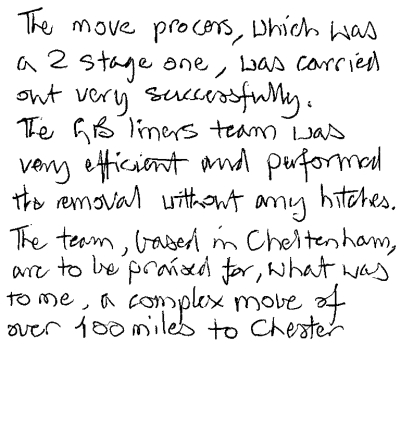 The move process, which was
a 2 stage one, was carried
out very successfully.
The GB liners team was
very efficient and performed
the removal without any hitches.
The team, based in Cheltenham,
are to be praised for, what was
to me, a complex move of
over 100 miles to Chester